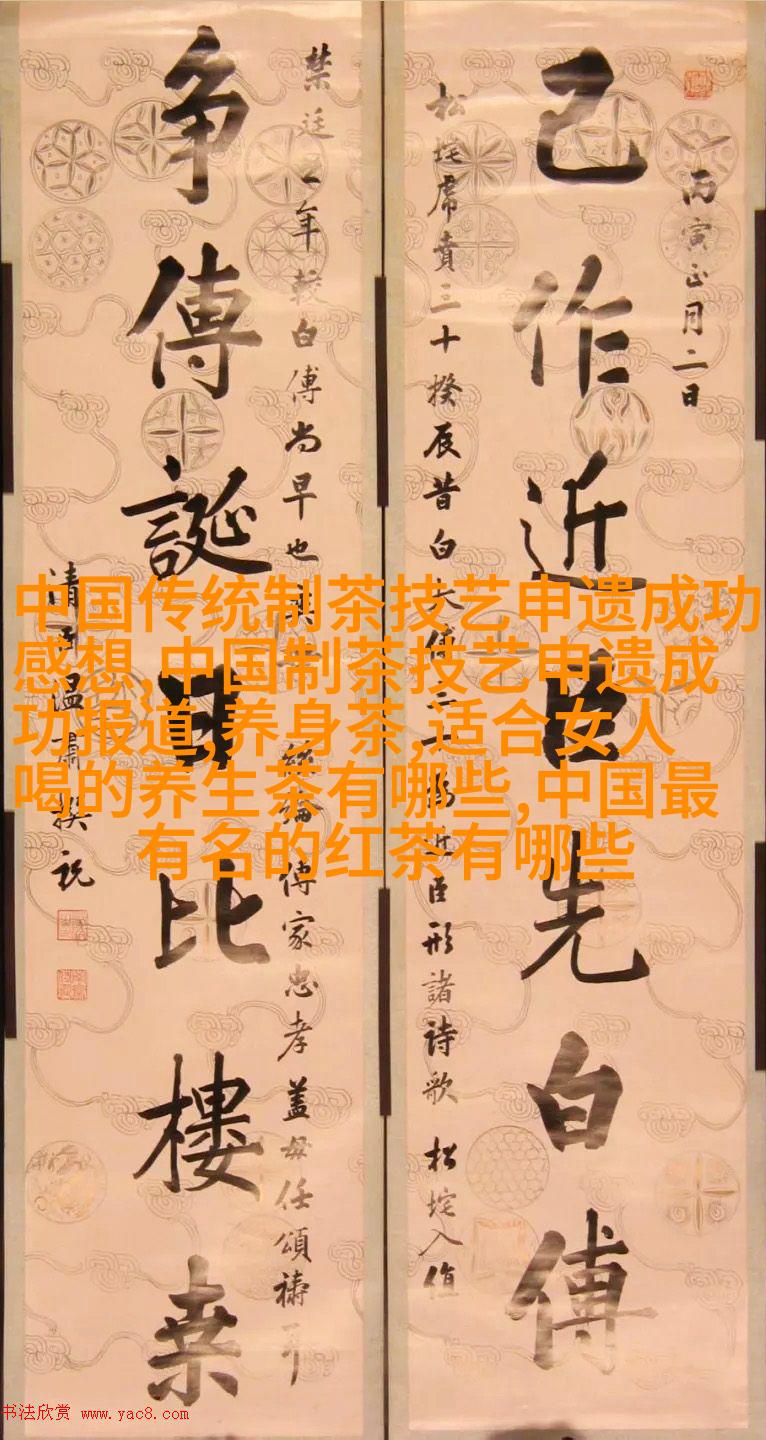 丙寅正月二日
己作近臣先白傅
松垞席賁三十揆辰昔白太傅三十為近臣形諸詩歌 松垞入值
禁廷年較白傅尚早也
經綸傳家忠孝蓋毋任頌禱耳
争傳誕日比樓桒
温肅撰祝
中国传统制茶技艺申遗成功
感想,中国制茶技艺申遗成
功报道,养身茶,适合女人
喝的养生茶有哪些,中国最
有名的红茶有哪些
书法欣赏 www.yac8.com